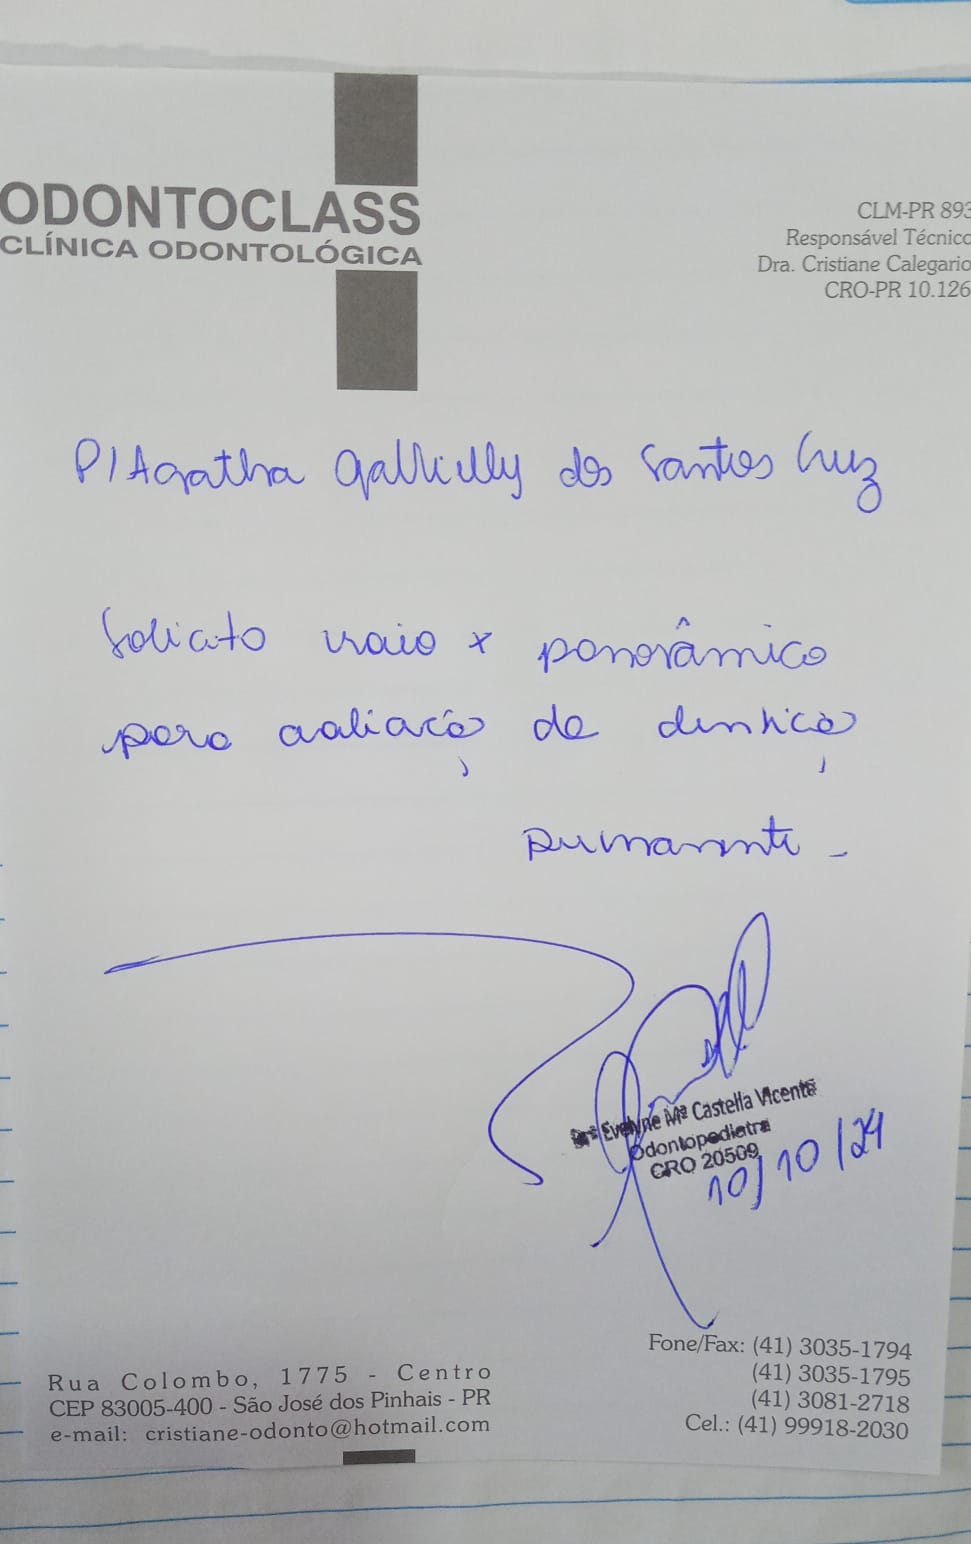 ODONTOCLASS
CLÍNICA ODONTOLÓGICA
CLM-PR 893
Responsável Técnico
Dra. Cristiane Calegario
CRO-PR 10.126
P/ Agatha dos Santos Cruz
Solicito raio x panorâmico
para avaliação da dentição
permanente -
Drª Evelyne Mª Castella Vicente
Odontopediatra
CRO 20509
10/10/24
Rua Colombo, 1775 - Centro
CEP 83005-400 - São José dos Pinhais - PR
e-mail: cristiane-odonto@hotmail.com
Fone/Fax: (41) 3035-1794
(41) 3035-1795
(41) 3081-2718
Cel.: (41) 99918-2030